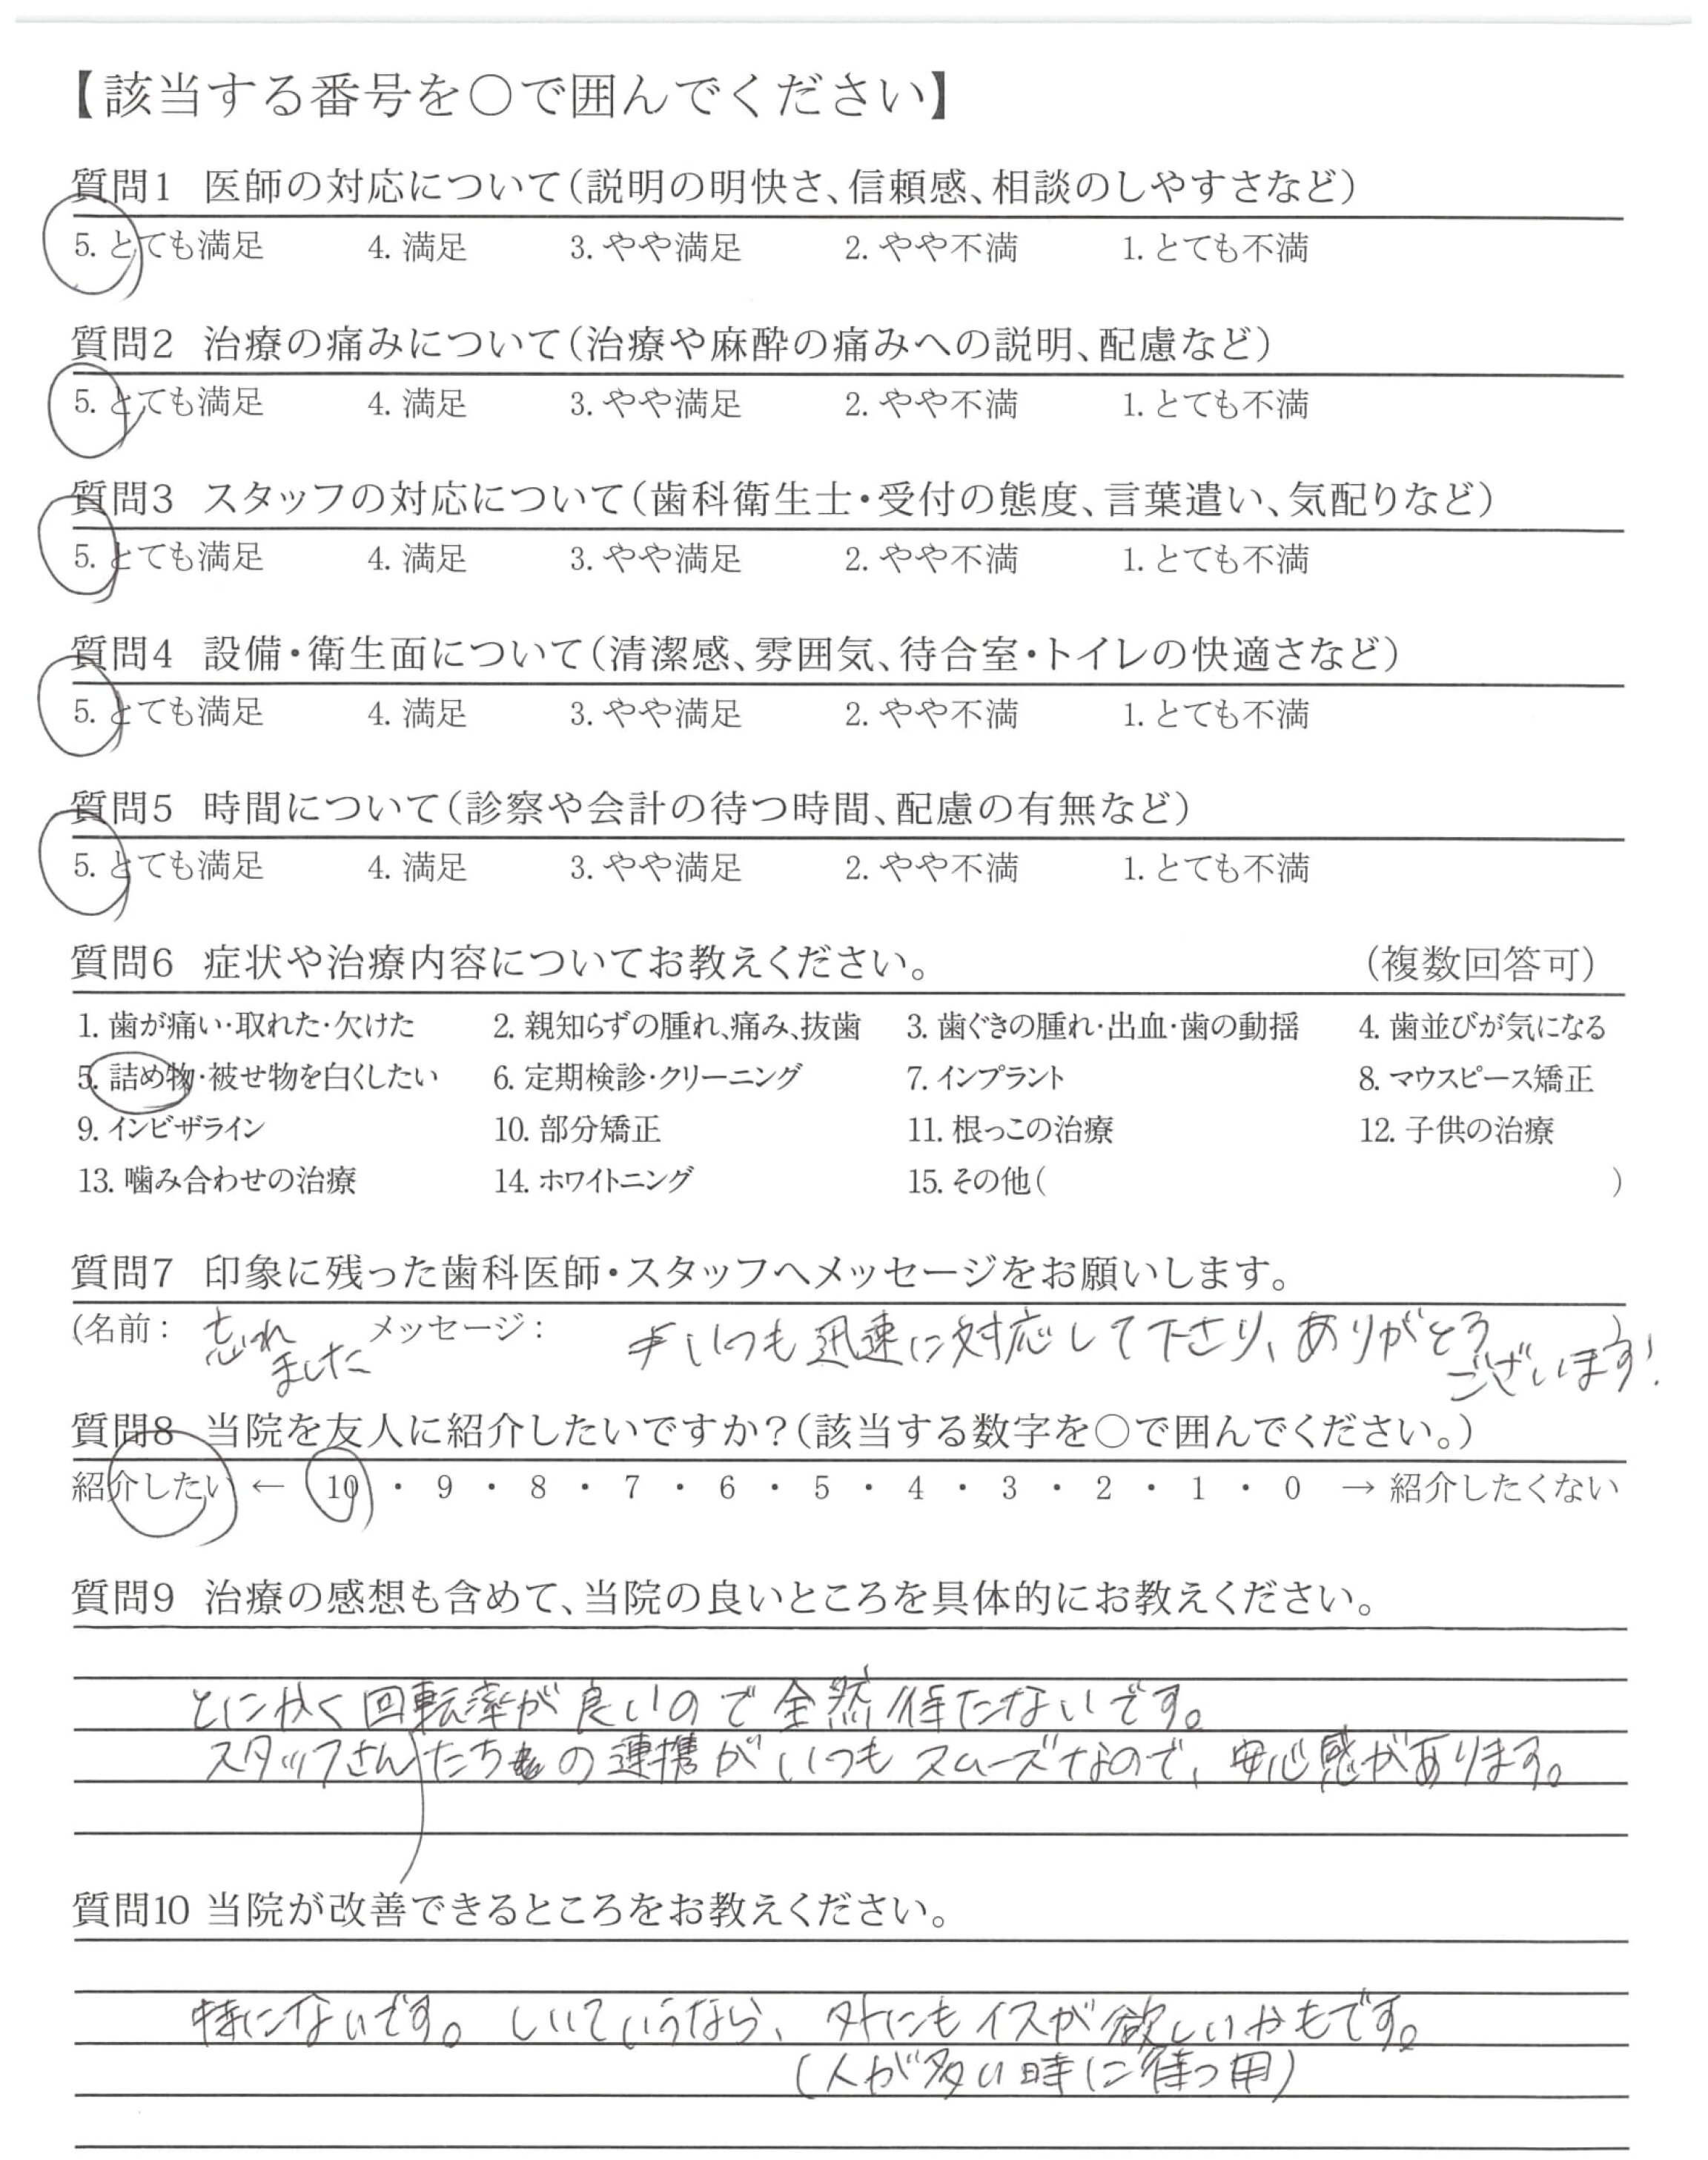 【該当する番号を○で囲んでください】
質問1 医師の対応について(説明の明快さ、信頼感、相談のしやすさなど)
5. とても満足 4. 満足 3. やや満足 2. やや不満 1. とても不満
質問2 治療の痛みについて(治療や麻酔の痛みへの説明、配慮など)
5. とても満足 4. 満足 3. やや満足 2. やや不満 1. とても不満
質問3 スタッフの対応について(歯科衛生士・受付の態度、言葉遣い、気配りなど)
5. とても満足 4. 満足 3. やや満足 2. やや不満 1. とても不満
質問4 設備・衛生面について(清潔感、雰囲気、待合室・トイレの快適さなど)
5. とても満足 4. 満足 3. やや満足 2. やや不満 1. とても不満
質問5 時間について(診察や会計の待つ時間、配慮の有無など)
5. とても満足 4. 満足 3. やや満足 2. やや不満 1. とても不満
質問6 症状や治療内容についてお教えください。 (複数回答可)
1. 歯が痛い・取れた・欠けた 2. 親知らずの腫れ、痛み、抜歯 3. 歯ぐきの腫れ・出血・歯の動揺 4. 歯並びが気になる
5. 詰め物・被せ物を白くしたい 6. 定期検診・クリーニング 7. インプラント 8. マウスピース矯正
9. インビザライン 10. 部分矯正 11. 根っこの治療 12. 子供の治療
13. 噛み合わせの治療 14. ホワイトニング 15. その他( )
質問7 印象に残った歯科医師・スタッフへメッセージをお願いします。
(名前: 忘れました メッセージ: いつも迅速に対応して下さり、ありがとうございます! )
質問8 当院を友人に紹介したいですか?(該当する数字を○で囲んでください。)
紹介したい ← 10 ・ 9 ・ 8 ・ 7 ・ 6 ・ 5 ・ 4 ・ 3 ・ 2 ・ 1 ・ 0 → 紹介したくない
質問9 治療の感想も含めて、当院の良いところを具体的にお教えください。
とにかく回転率が良いので全然待たないです。
スタッフさんたちの連携がいつもスムーズなので、安心感があります。
質問10 当院が改善できるところをお教えください。
特にないです。しいていうなら、外にもイスが欲しいかもです。
(人が多い時に待つ用)